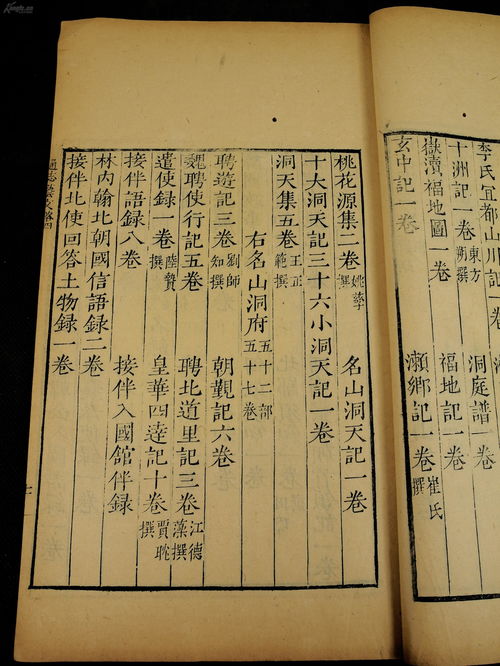 李氏宜都山川記一卷
十洲記一卷 東方朔撰 洞庭譜一卷
嶽瀆福地圖一卷 福地記一卷
玄中記一卷 瀨鄉記一卷 崔氏撰
桃花源集二卷 姚孳撰 名山洞天記一卷
十大洞天記三十六小洞天記一卷
洞天集五卷 王正範撰
右名山洞府 五十二部五十七卷
聘遊記三卷 劉師知撰 朝覲記六卷
魏聘使行記五卷 聘北道里記三卷 江德藻撰
遣使録一卷 陸贄撰 皇華四達記十卷 賈耽撰
接伴語録八卷 接伴入國館伴録
林内翰北朝國信語録二卷
接伴北使回答土物録一卷